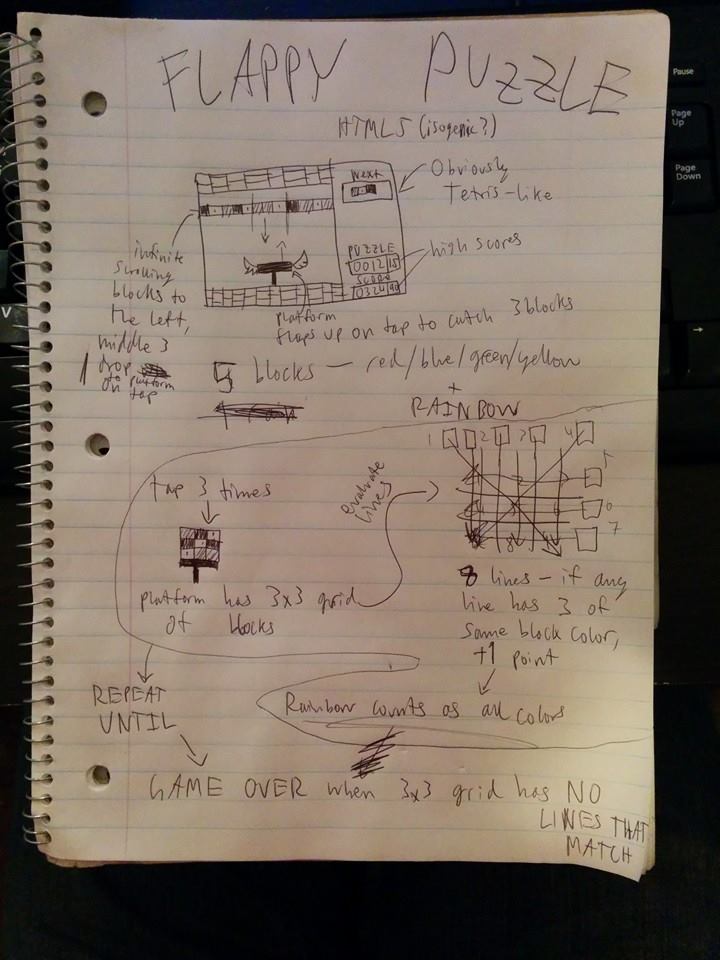 FLAPPY PUZZLE
HTML5 (isogenic?)
Next
Obviously
Tetris-like
PUZZLE
SCORE
high scores
infinite
scrolling
blocks to
the left,
middle 3
drop
onto platform
on tap
platform
flaps up on tap to catch 3 blocks
5 blocks — red/blue/green/yellow
+
RAINBOW
1 2 3 4
5
6
7
8
evaluate
lines
tap 3 times
platform has 3x3 grid
of blocks
8 lines - if any
line has 3 of
same block color,
+1 point
Rainbow counts as all colors
REPEAT
UNTIL
GAME OVER when 3x3 grid has NO
LINES THAT
MATCH
Pause
Page
Up
Page
Down
V